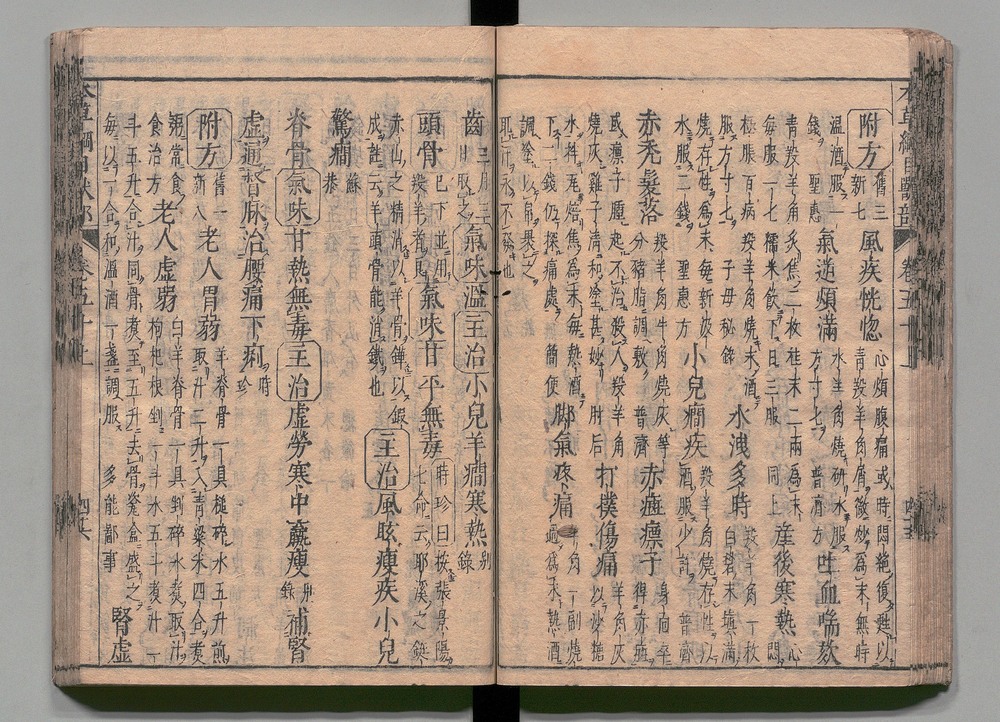 附方 舊三新七 風疾恍惚 心煩腹痛或時悶絶復甦以青羖羊角屑微炒爲末無時
溫酒服 錢 聖惠 氣逆煩滿 水羊角燒研水服方寸七 普濟方 吐血喘欬
青羖羊角炙焦二枚桂末二兩爲末
每服一七糯米飲下日三服 同上 産後寒熱 心
極脹百病羖羊角燒末酒
服方寸七 子母秘錄 水洩多時 羖羊角一枚白礬末塡滿
燒存性爲末每新汲
水服二錢 聖惠方 小兒癎疾 羖羊角燒存性以酒服少許 普濟
赤禿髮落 羖羊角牛角燒灰等分猪脂調敷 普濟 赤疵瘭子 身面卒得赤疵
或瘭子腫起不治殺人羖羊角
燒灰雞子清和塗甚妙 肘后 打撲傷痛 羊角灰以沙糖
水拌瓦焙焦爲末每熱酒
下二錢仍揉痛處 簡便 脚氣疼痛 羊角一副燒過爲末熱酒
調塗以帛裹之
取汗永不發也
齒 三月三日取之 氣味溫主治小兒羊癎寒熱 別錄
頭骨 已下並用羖羊者良 氣味甘平無毒 時珍曰按張景陽七命云耶溪之鋌
赤山之精消以羊骨鏁以鍛
成註云羊頭骨能消鐵也 主治風眩瘦疾小兒
驚癎 蘇恭
脊骨氣味甘熱無毒主治虛勞寒中羸瘦 別錄 補腎
虛通督脉治腰痛下痢 時珍
附方 舊一新八 老人胃弱 羊脊骨一具槌碎水五升煎取汁二升入靑粱米四合煮
粥常食
食治方 老人虛弱 白羊脊骨一具剉碎水煮取汁枸杞根剉一斗水五斗煮汁一
斗五升合汁同骨煮至五升去骨瓷盒盛之
每以一合和溫酒一盞調服 多能鄙事 腎虛